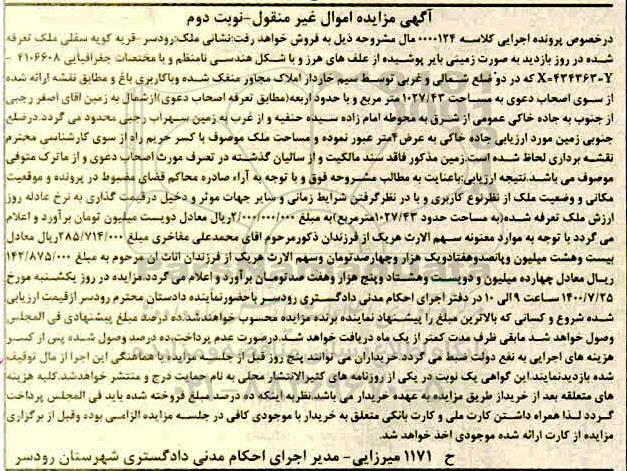 آگهی مزایده اموال غیر منقول-نوبت دوم
درخصوص پرونده اجرایی کلاسه ۰۰۰۰۱۲۴ مال مشروحه ذیل به فروش خواهد رفت:نشانی ملک:رودسر-قریه کویه سفلی ملک تعرفه
شده در روز بازدید به صورت زمینی بایر پوشیده از علف های هرز و با شکل هندسی نامنظم و با مختصات جغرافیایی ۴۱۰۶۶۰۸ -
X=۴۳۴۳۶۳-Y که در دو ضلع شمالی و غربی توسط سیم خاردار املاک مجاور منفک شده وباکاربری باغ و مطابق نقشه ارائه شده
از سوی اصحاب دعوی به مساحت ۱۰۲۷/۴۳ متر مربع و با حدود اربعه(مطابق تعرفه اصحاب دعوی)ازشمال به زمین اقای اصغر رجبی
از جنوب به جاده خاکی عمومی از شرق به محوطه امام زاده سیده حنفیه و از غرب به زمین سهراب رجبی محدود می گردد.درضلع
جنوبی زمین مورد ارزیابی جاده خاکی به عرض ۴متر عبور نموده و مساحت ملک موصوف با کسر حریم راه از سوی کارشناسی محترم
نقشه برداری لحاظ شده است.زمین مذکور فاقد سند مالکیت و از سالیان گذشته در تصرف مورث اصحاب دعوی و از ماترک متوفی
موصوف می باشد.نتیجه ارزیابی:باعنایت به مطالب مشروحه فوق و با توجه به آراء صادره محاکم قضای مضبوط در پرونده و موقعیت
مکانی و وضعیت ملک از نظرنوع کاربری و با در نظرگرفتن شرایط زمانی و سایر جهات موثر و دخیل درقیمت گذاری به نرخ عادله روز
ارزش ملک تعرفه شده(به مساحت حدود ۱۰۲۷/۴۳مترمربع)به مبلغ ۲/۰۰۰/۰۰۰/۰۰۰ریال معادل دویست میلیون تومان برآورد و اعلام
می گردد با توجه به موارد معنونه سهم الارث هریک از فرزندان ذکورمرحوم اقای محمدعلی مفاخری مبلغ ۲۸۵/۷۱۴/۰۰۰ریال معادل
بیست وهشت میلیون وپانصدوهفتادویک هزار وچهارصدتومان وسهم الارث هریک از فرزندان اناث ان مرحوم به مبلغ ۱۴۲/۸۷۵/۰۰۰
ریال معادل چهارده میلیون و دویست وهشتاد وپنج هزار وهفت صدتومان برآورد و اعلام می گردد.مزایده در روز یکشنبه مورخ
۱۴۰۰/۷/۲۵ ساعت ۹ الی ۱۰ در دفتر اجرای احکام مدنی دادگستری رودسر باحضورنماینده دادستان محترم رودسر ازقیمت ارزیابی
شده شروع و کسانی که بالاترین مبلغ را پیشنهاد نماینده برنده مزایده محسوب خواهندشد.ده درصد مبلغ پیشنهادی فی المجلس
وصول خواهد شد مابقی ظرف مدت کمتر از یک ماه دریافت خواهد شد.درصورت عدم پرداخت،ده درصد وصول شده پس از کسر
هزینه های اجرایی به نفع دولت ضبط می گردد خریداران می توانند پنج روز قبل از جلسه مزایده با هماهنگی این اجرا از مال توقیف
شده بازدیدنمایند.این گواهی یک نوبت در یکی از روزنامه های کثیرالانتشار محلی به نام حمایت درج و منتشر خواهدشد.کلیه هزینه
های متعلقه بعد از خریداز طریق مزایده به عهده خریدار می باشد.نظربه اینکه ده درصد مبلغ فروخته شده باید فی المجلس پرداخت
گردد لذا همراه داشتن کارت ملی و کارت بانکی متعلق به خریدار با موجودی کافی در جلسه مزایده الزامی بوده وقبل از برگزاری
مزایده از کارت ارائه شده موجودی اخذ خواهد شد.
ح ۱۱۷۱ میرزایی- مدیر اجرای احکام مدنی دادگستری شهرستان رودسر